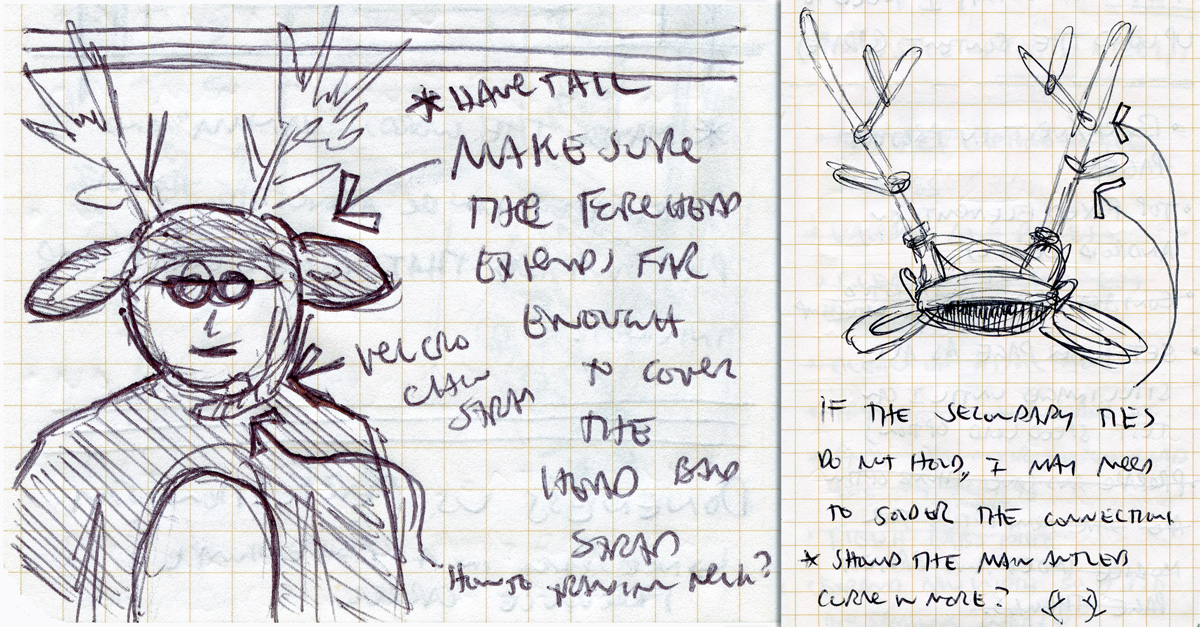 * HAVE TAIL
MAKE SURE
THE FOREHEAD
EXTENDS FAR
ENOUGH
TO COVER
THE
HEAD BAND
STRAP
VELCRO
CHIN
STRAP
HOW TO TRANSITION NECK?
IF THE SECONDARY TIES
DO NOT HOLD, I MAY NEED
TO SOLDER THE CONNECTIONS
* SHOULD THE MAIN ANTLERS
CURVE IN MORE?